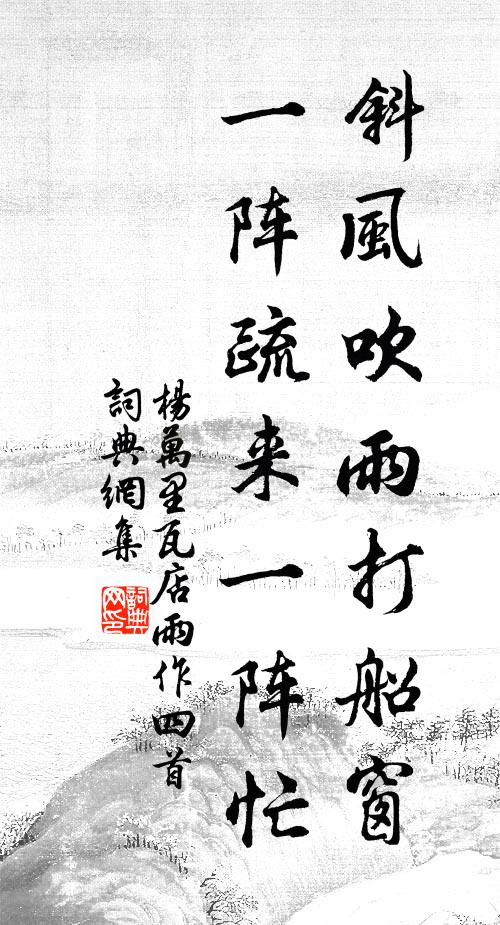 斜風吹雨打船窗
一阵疏来一阵忙
楊萬里瓦店雨作四首
詞典網集
詞典网印